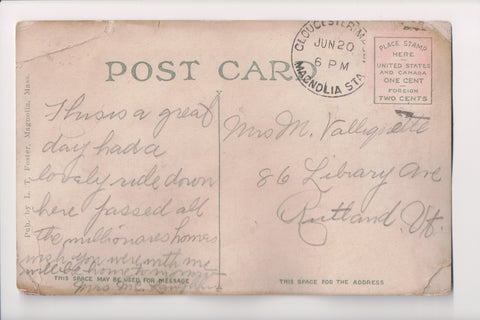 POST CARD
GLOUCESTER, MASS.
JUN 20
6 PM
MAGNOLIA STA.
PLACE STAMP
HERE
UNITED STATES
AND CANADA
ONE CENT
FOREIGN
TWO CENTS
Pub. by L. T. Foster, Magnolia, Mass.
This is a great
day had a
lovely ride down
here passed all
the millionares homes
wish you were with me
will be home tomorrow
Mrs Mc
Mrs M. Valiquette
86 Library Ave
Rutland. Vt.
THIS SPACE MAY BE USED FOR MESSAGE
THIS SPACE FOR THE ADDRESS